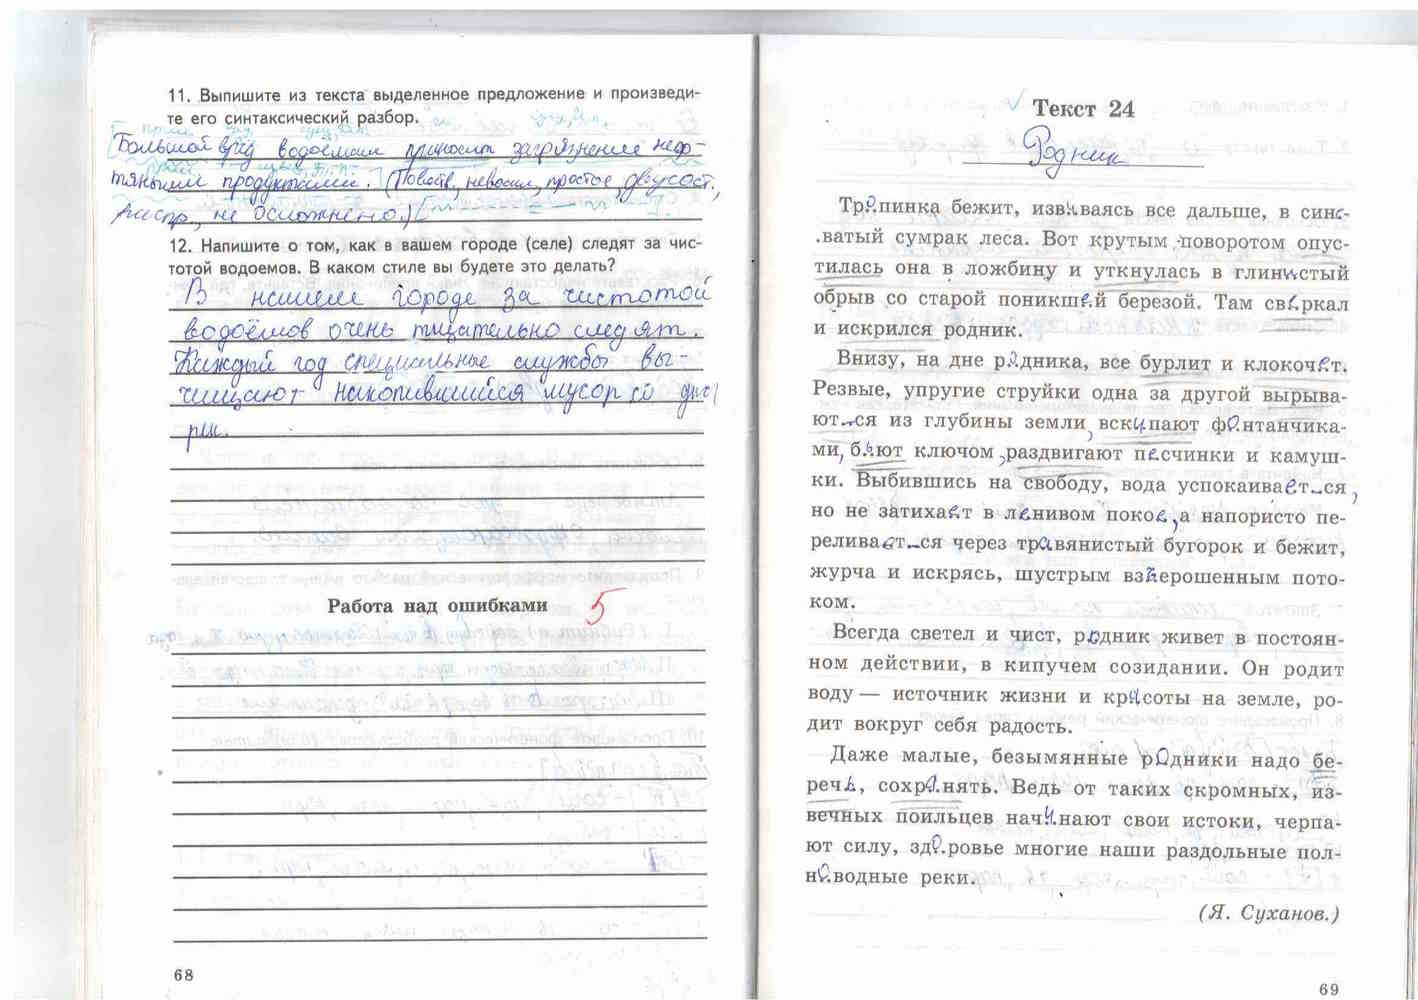 11. Выпишите из текста выделенное предложение и произведи-
те его синтаксический разбор.
Большой вред водоёмам приносит загрязнение неф-
тяными продуктами. (Повеств, невоскл, простое, двусост.,
распр, не осложнено.)
12. Напишите о том, как в вашем городе (селе) следят за чис-
тотой водоемов. В каком стиле вы будете это делать?
В нашем городе за чистотой
водоёмов очень тщательно следят.
Каждый год специальные службы вы-
чищают накопившийся мусор со дна
рек.
Работа над ошибками
5
68
Текст 24
Родник
Тропинка бежит, извиваясь все дальше, в сине-
ватый сумрак леса. Вот крутым поворотом опус-
тилась она в ложбину и уткнулась в глинистый
обрыв со старой поникшей березой. Там сверкал
и искрился родник.
Внизу, на дне родника, все бурлит и клокочет.
Резвые, упругие струйки одна за другой вырыва-
ются из глубины земли, вскипают фонтанчика-
ми, бьют ключом, раздвигают песчинки и камуш-
ки. Выбившись на свободу, вода успокаивается,
но не затихает в ленивом покое, а напористо пе-
реливается через травянистый бугорок и бежит,
журча и искрясь, шустрым взъерошенным пото-
ком.
Всегда светел и чист, родник живет в постоян-
ном действии, в кипучем созидании. Он родит
воду — источник жизни и красоты на земле, ро-
дит вокруг себя радость.
Даже малые, безымянные родники надо бе-
речь, сохранять. Ведь от таких скромных, из-
вечных поильцев начинают свои истоки, черпа-
ют силу, здоровье многие наши раздольные пол-
новодные реки.
(Я. Суханов.)
69